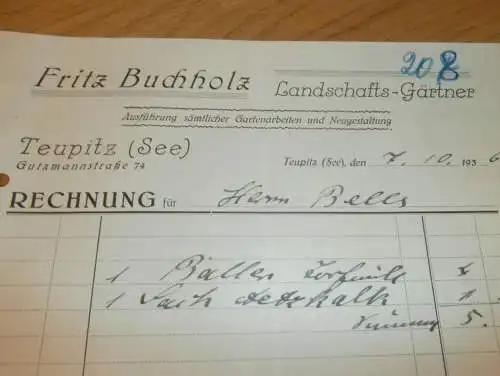 208
Fritz Buchholz Landschafts-Gärtner
Ausführung sämtlicher Gartenarbeiten und Neugestaltung
Teupitz (See)
Gutzmannstraße 74
Teupitz (See), den 7. 10. 1936
RECHNUNG für Herrn Bells
1 Ballen Torfmull
1 Sack Aetzkalk 1
5.